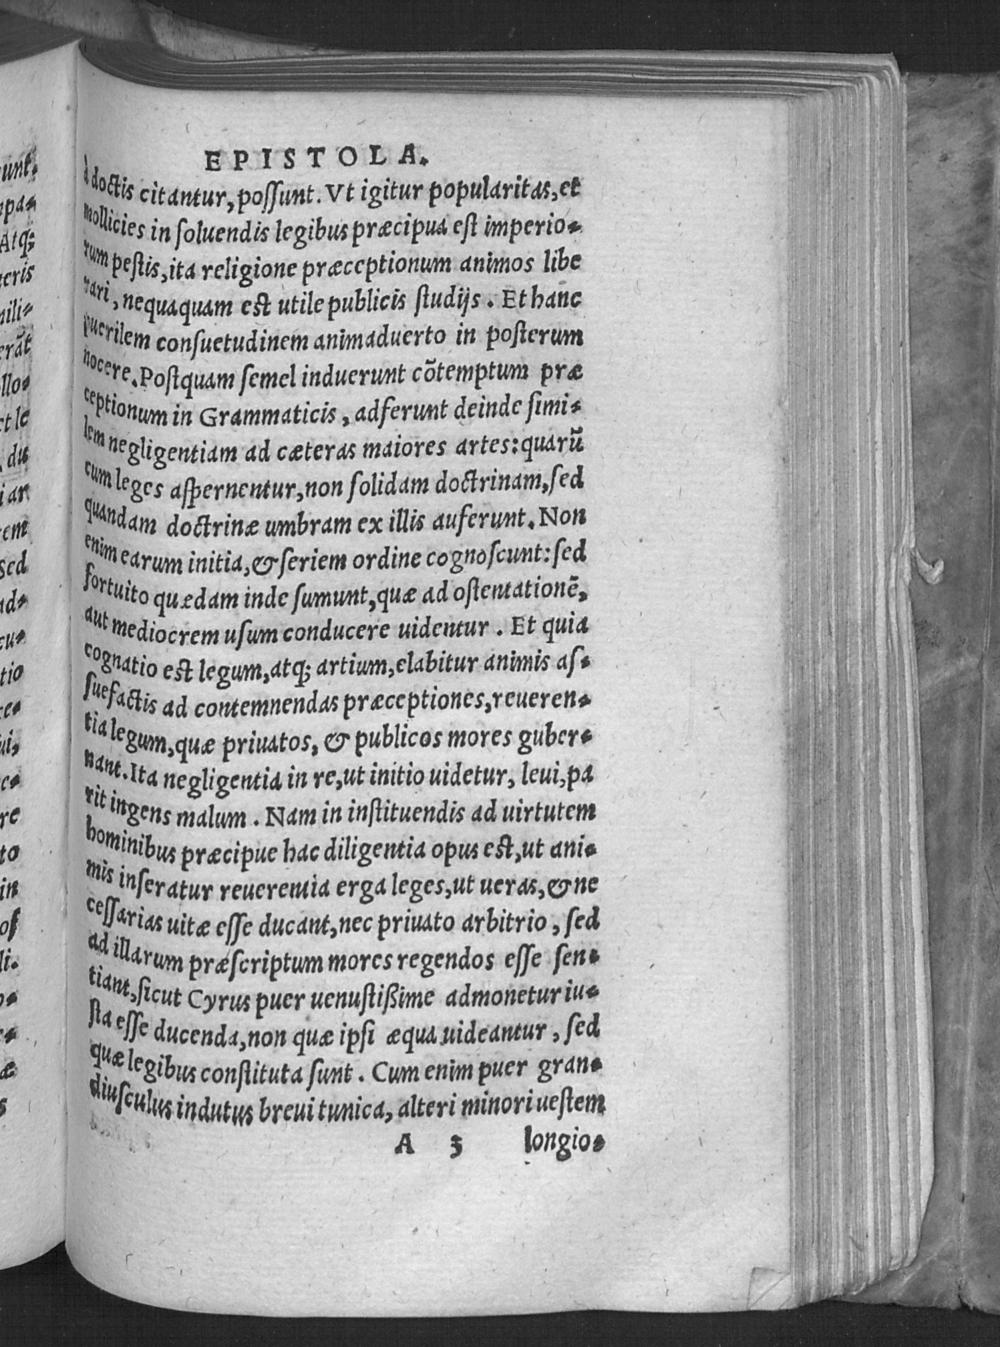 EPISTOLA.
à doctis citantur, possunt. Vt igitur popularitas, et
mollicies in soluendis legibus præcipua est imperio-
rum pestis, ita religione præceptionum animos libe
rari, nequaquam est utile publicis studijs. Et hanc
puerilem consuetudinem animaduerto in posterum
nocere. Postquam semel induerunt cõtemptum præ
ceptionum in Grammaticis, adferunt deinde simi-
lem negligentiam ad cæteras maiores artes: quarũ
cum leges aspernentur, non solidam doctrinam, sed
quandam doctrinæ umbram ex illis auferunt. Non
enim earum initia, & seriem ordine cognoscunt: sed
fortuito quædam inde sumunt, quæ ad ostentationẽ,
aut mediocrem usum conducere uidentur. Et quia
cognatio est legum, atq; artium, elabitur animis as-
suefactis ad contemnendas præceptiones, reueren-
tia legum, quæ priuatos, & publicos mores guber-
nant. Ita negligentia in re, ut initio uidetur, leui, pa
rit ingens malum. Nam in instituendis ad uirtutem
hominibus præcipue hac diligentia opus est, ut ani-
mis inseratur reuerentia erga leges, ut ueras, & ne
cessarias uitæ esse ducant, nec priuato arbitrio, sed
ad illarum præscriptum mores regendos esse sen-
tiant, sicut Cyrus puer uenustißime admonetur iu-
sta esse ducenda, non quæ ipsi æqua uideantur, sed
quæ legibus constituta sunt. Cum enim puer gran-
diusculus indutus breui tunica, alteri minori uestem
A 3 longio-
unt.
Atq;
teris
erãt
ct le
sed
tio
re
to
in